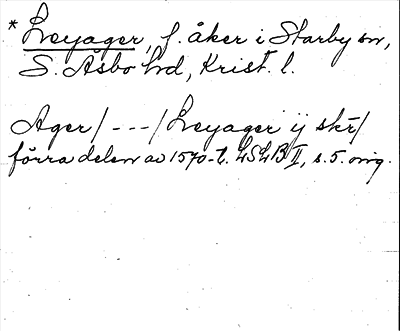 * Leyager, f. åker i Starby sn,
S. Åsbo hd, Krist. l.
Ager/---/Leyager ij skr/
förra delen av 1570-t. LSLB II, s. 5. orig.